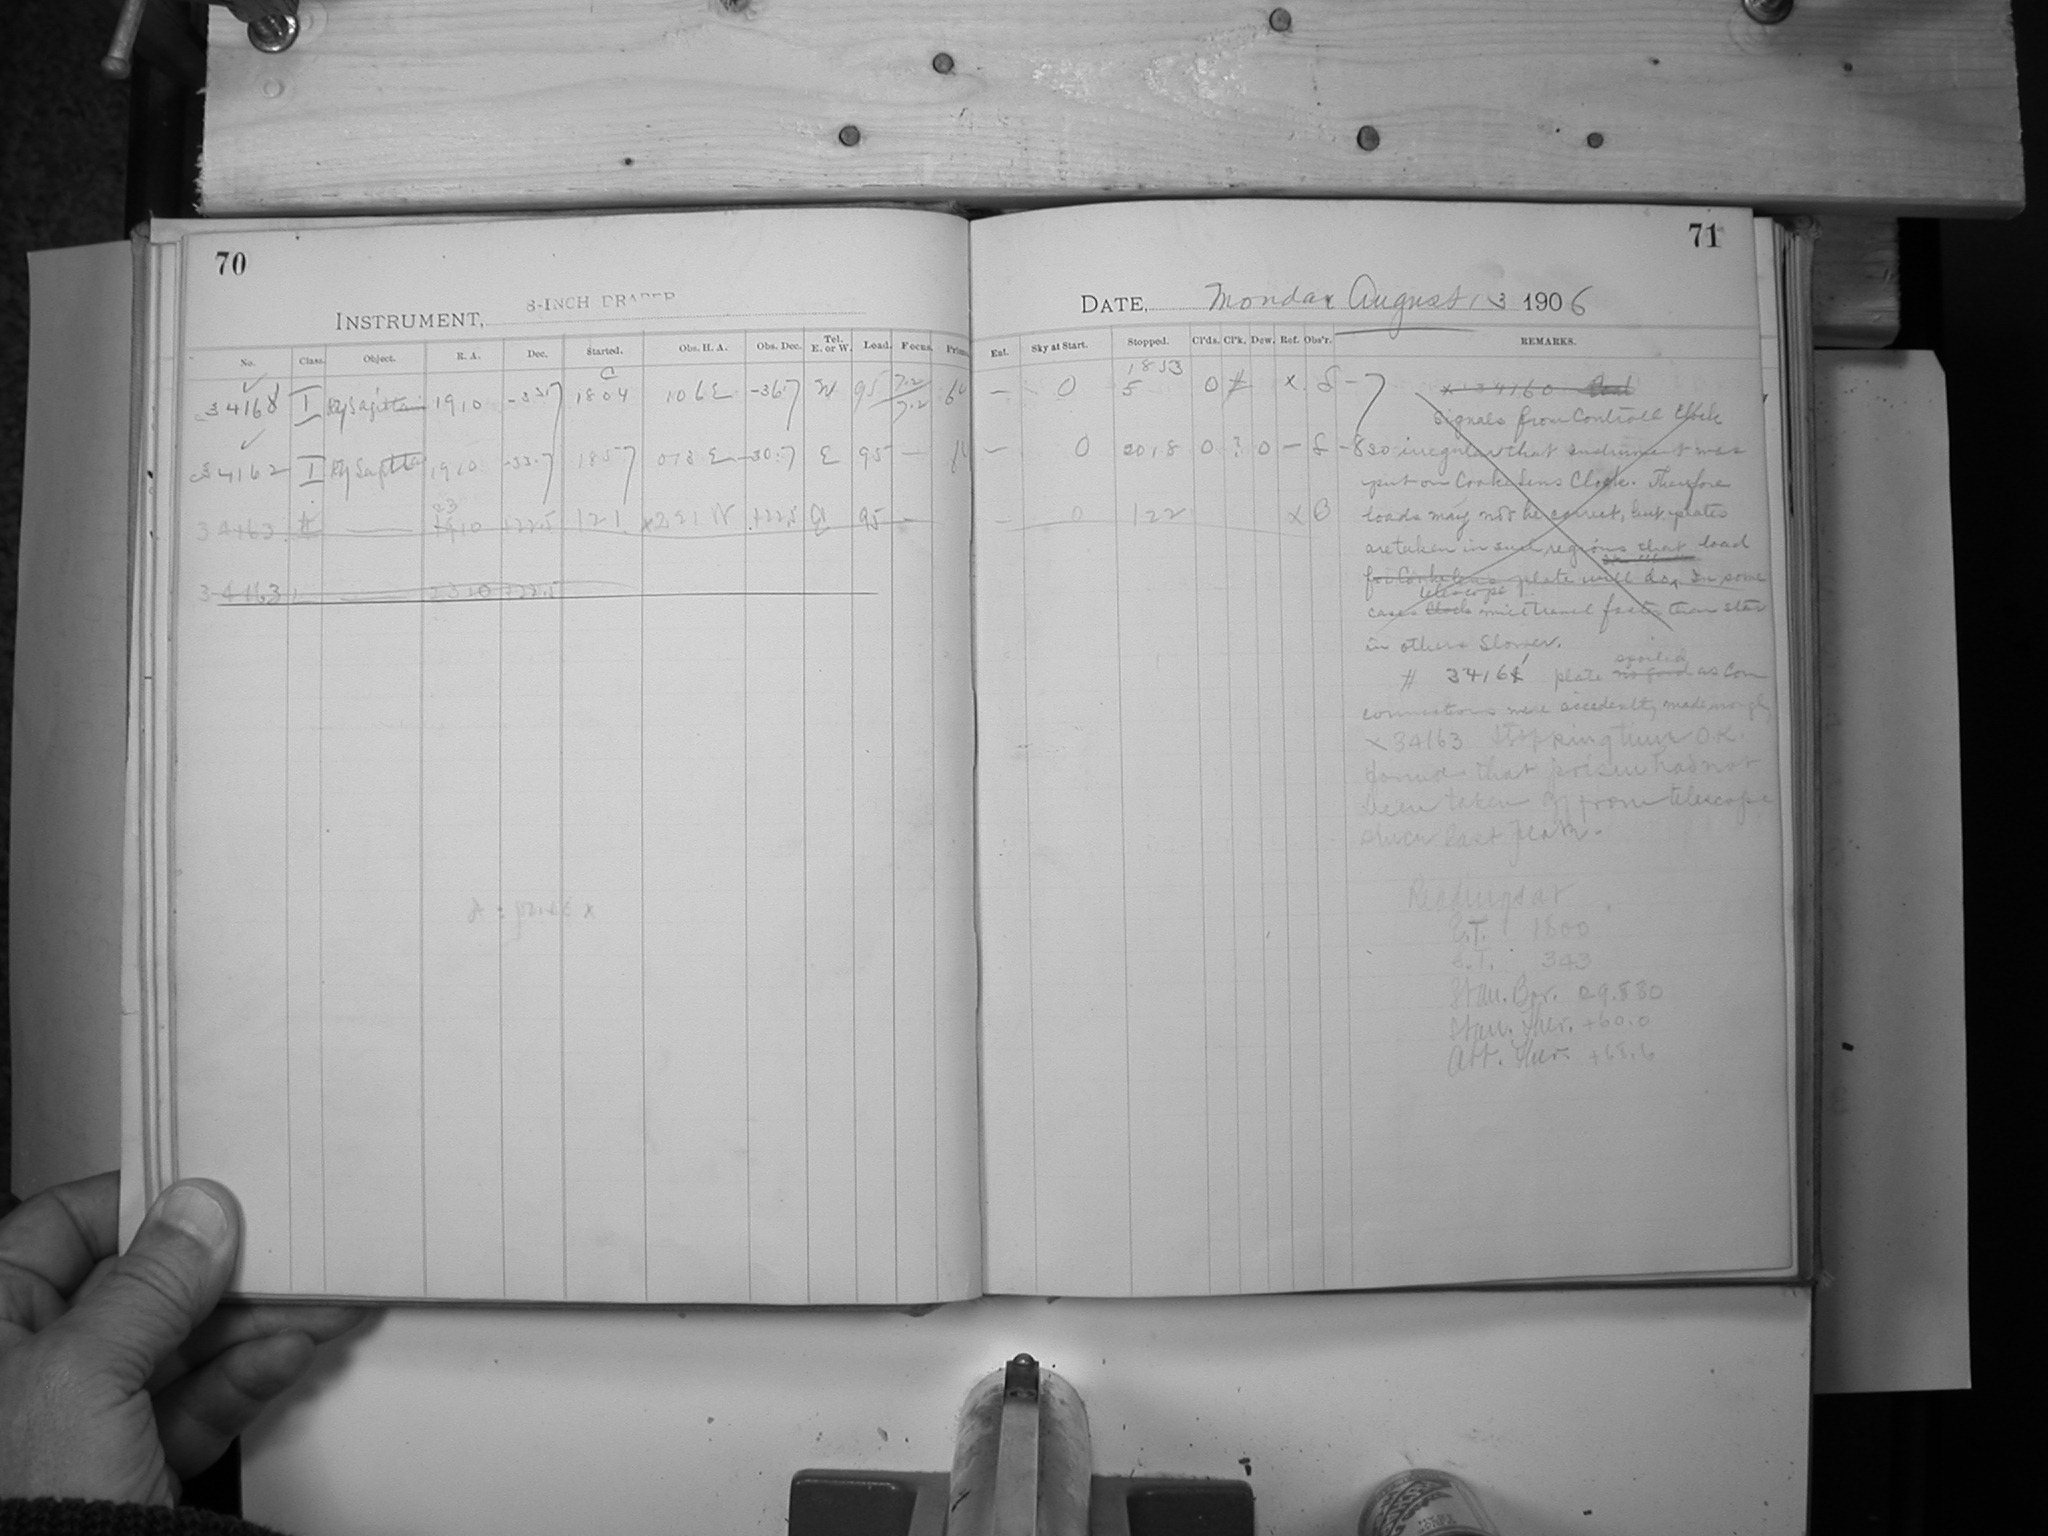 70
INSTRUMENT, 8-INCH DRAPER
No. Class. Object. R. A. Dec. Started. Obs. H. A. Obs. Dec. Tel. E. or W. Load. Focus.
I RySagittarii 1910 -33.7 1804 106E -36.7 W 95 7.2
34162 I RySagittarii 1910 -33.7 1857 013E -30.7 E 95 —
34163 A — 1910 +22.5 121 x221W +22.5 E 95 —
34163 L — 2310 +22.5
71
DATE, Monday August 13 1906
Est. Sky at Start. Stopped. Cl'ds. Cl'k. Dew. Ref. Obs'r. REMARKS.
— 0 1853 0 # x. S-7
— 0 2018 0 ? 0 — S-8
— 0 122 x B
x 34160
Signals from Controll Clock
so irregular that instrument was
put on Cooke Lens Clock. Therefore
loads may not be correct, but plates
are taken in such regions that load
for Cooke lens plate will do, In some
cases telescope will travel faster than star
in others Slower.
# 3416 plate spoiled as
connections were made
x 34163 Stopping time O.K.
found that prism had not
been taken off from telescope
since last
Readings at
E.T. 1800
S.T. 343
Stan. Bar. 29.830
Stan. Ther. +60.0
Att. Ther. +68.6